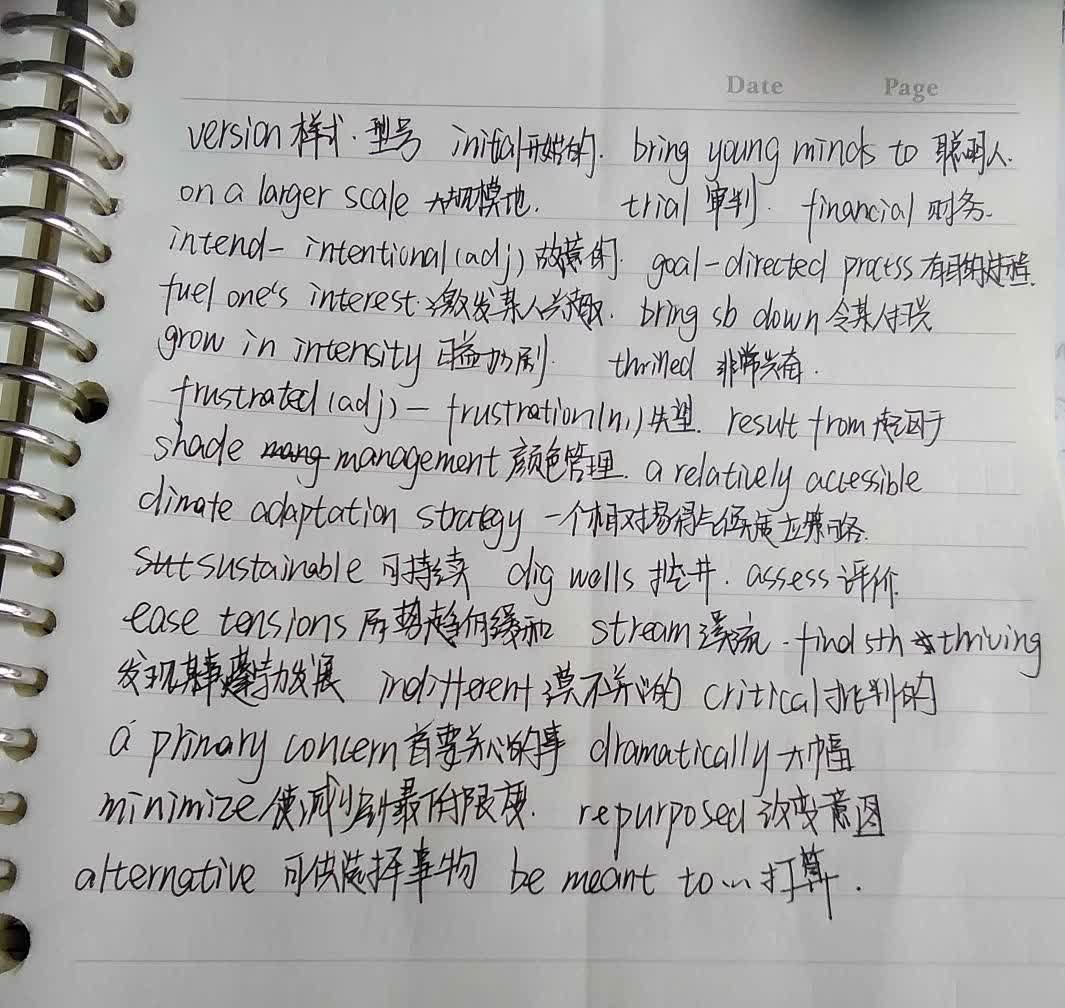 Date Page
version 样式.型号 initial 开始的. bring young minds to 聪明人.
on a larger scale 大规模地. trial 审判. financial 财务.
intend - intentional (adj) 故意的. goal-directed process 有目的过程.
fuel one's interest 激发某人兴趣. bring sb down 令某人
grow in intensity 日益加剧. thrilled 非常兴奋.
frustrated (adj) — frustration (n.) 失望. result from 起因于
shade management 颜色管理. a relatively accessible
climate adaptation strategy 一个相对易得气候 策略.
sustainable 可持续 dig wells 挖井. assess 评价
ease tensions 局势趋向缓和 stream 溪流. find sth thriving
发现某事蓬勃发展 indifferent 漠不关心的 critical 批判的
a primary concern 首要关心的事 dramatically 大幅
minimize 使减少到最低限度. repurposed 改变意图
alternative 可供选择事物 be meant to... 打算.